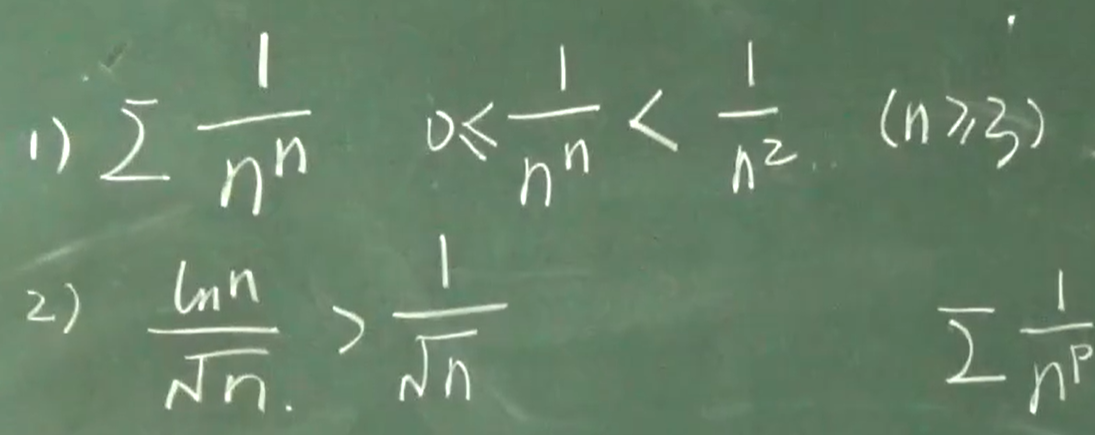 1) ∑ 1/n^n 0≤ 1/n^n < 1/n^2 (n≥3)
2) ln n/√n. > 1/√n ∑ 1/n^p